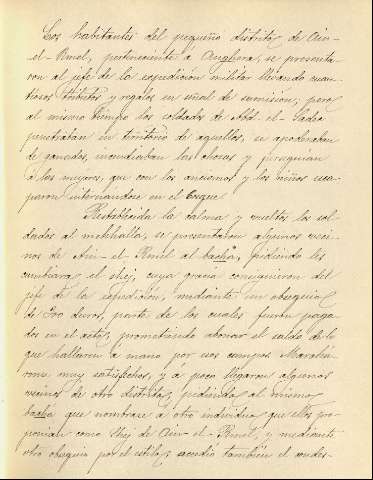 Los habitantes del pequeño distrito de Ain-
el-Rmel, perteneciente á Anghera, se presenta-
ron al jefe de la expedición militar llevando cuan-
tiosos tributos y regalos en señal de sumisión, pero
al mismo tiempo los soldados de Abd-el-Sadec
penetraban en territorio de aquellos, se apoderaban
de ganados, incendiaban las chozas y perseguían
á las mujeres, que con los ancianos y los niños esca-
paron internándose en el bosque.
Restablecida la calma y vueltos los sol-
dados al mehhalla, se presentaron algunos veci-
nos de Ain-el-Rmel al bacha, pidiendo les
cambiara el shej, cuya gracia consiguieron del
jefe de la expedición, mediante un obsequio
de 500 duros, parte de los cuales fueron paga-
dos en el acto, prometiendo abonar el saldo de lo
que hallaron a mano por sus campos. Marchá-
ronse muy satisfechos, y á poco llegaron algunos
vecinos de otro distrito, pidiendo al mismo
bacha que nombrase á otro individuo que ellos pro-
ponían como Shej de Ain-el-Rmel, y mediante
otro obsequio por el estilo, accedió también el